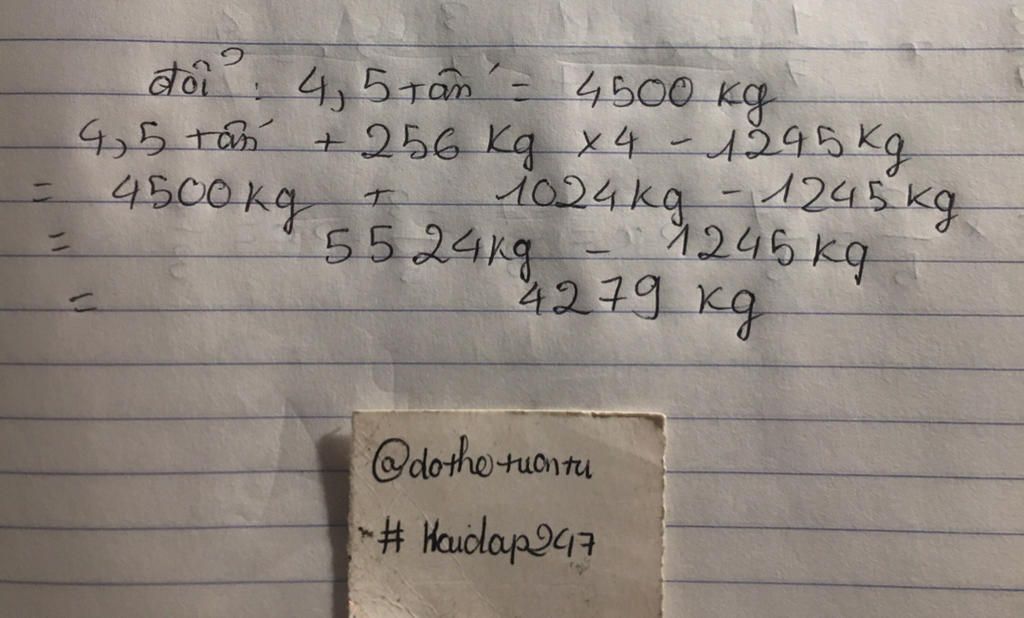 đổi : 4,5 tấn = 4500 kg
4,5 tấn + 256 kg x 4 - 1245 kg
= 4500 kg + 1024 kg - 1245 kg
= 5524 kg - 1245 kg
= 4279 kg
@dothetuantu
# Hoidap247